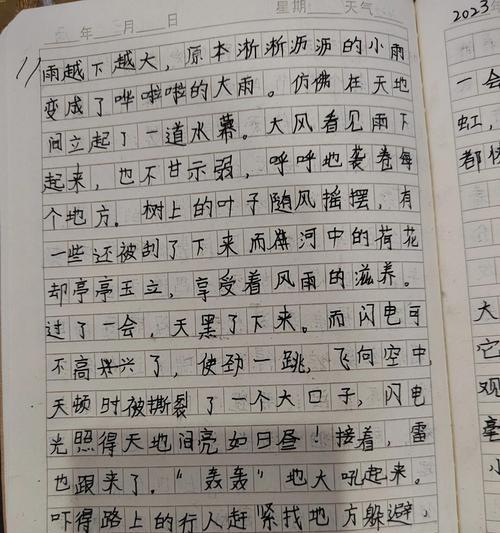 年 月 日 星期 天气
11 雨越下越大，原本淅淅沥沥的小雨
变成了哗啦啦的大雨。仿佛在天地
间立起了一道水幕。大风看见雨下
起来，也不甘示弱，呼呼地袭卷每
个地方。树上的叶子随风摇摆，有
一些还被刮了下来而河中的荷花
却亭亭玉立，享受着风雨的滋养。
过了一会，天黑了下来。而闪电可
不高兴了，使劲一跳，飞向空中，
天顿时被撕裂了一个大口子，闪电
光照得天地间亮如白昼！接着，雷
也跟来了。“轰轰”地大吼起来。
吓得路上的行人赶紧找地方躲避，
2023
一会
虹，
都
大
它
最
毫
小